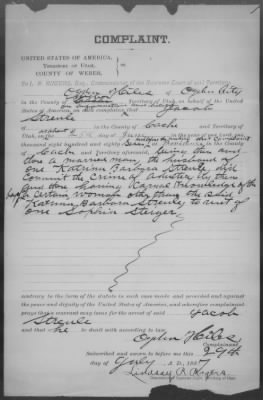 COMPLAINT.
UNITED STATES OF AMERICA,
TERRITORY OF UTAH,
COUNTY OF WEBER.
To L. R. ROGERS, Esq., Commissioner of the Supreme Court of said Territory.
Ogden Hiles of Ogden City
in the County of Weber Territory of Utah, on behalf of the United
States of America, on information and belief, on oath complains that Jacob
Streule
of in the County of Cache and Territory of
Utah, on the day of in the year of our Lord one
thousand eight hundred and eighty
County of Cache and Territory aforesaid, being then and
there a married man, the husband of
one Katrina Barbara Streule, did
commit the crime of Adultery, by then
and there having Carnal Knowledge of the
body of a certain woman other than the said
Katrina Barbara Streule, to wit of
one Sophia Steiger,
contrary to the form of the statute in such case made and provided and against
the peace and dignity of the United States of America, and wherefore complainant
prays that a warrant may issue for the arrest of said Jacob
Streule
and that he be dealt with according to law.
Ogden Hiles
Complainant.
Subscribed and sworn to before me this 29th
day of July A. D., 1887
Lindsay R. Rogers,
Commissioner of Supreme Court, Territory of Utah.